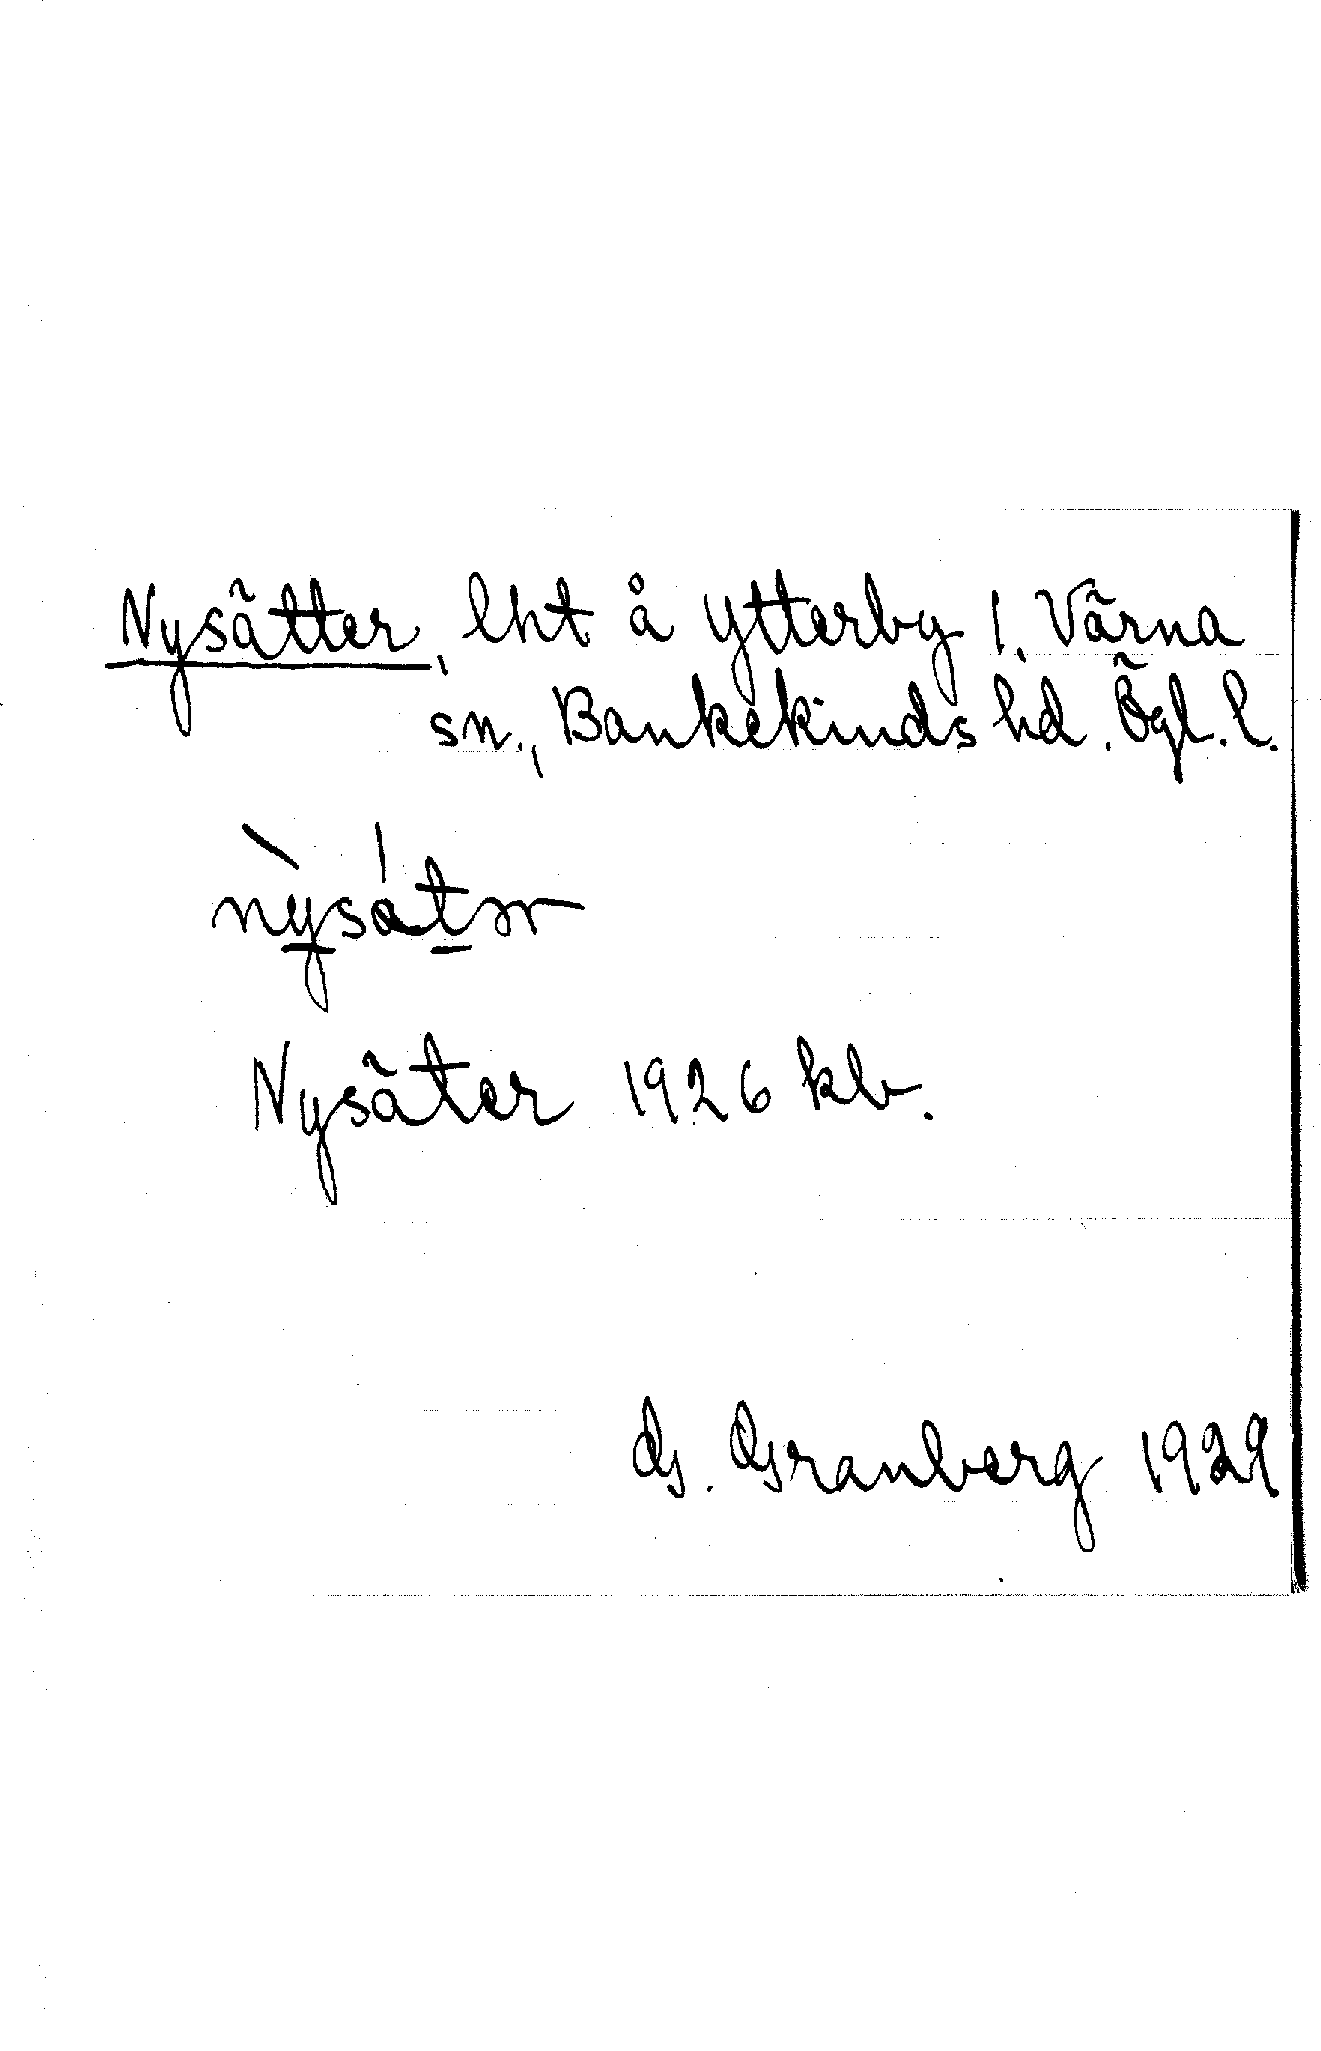 Nysätter, lht å Ytterby 1, Värna
sn., Bankekinds hd. Ögl. l.
nỳsátər
Nysäter 1926 kb.
G. Granberg 1929